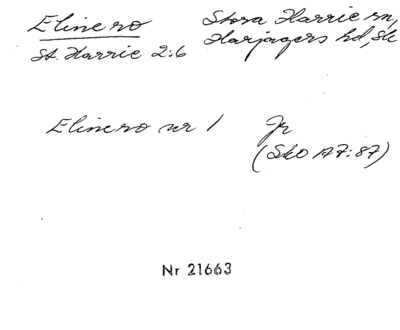 Elinero Stora Harrie sn,
St. Harrie 2:6 Harjagers hd, Sk
Elinero nr 1 Jr
(SkO A7:87)
Nr 21663